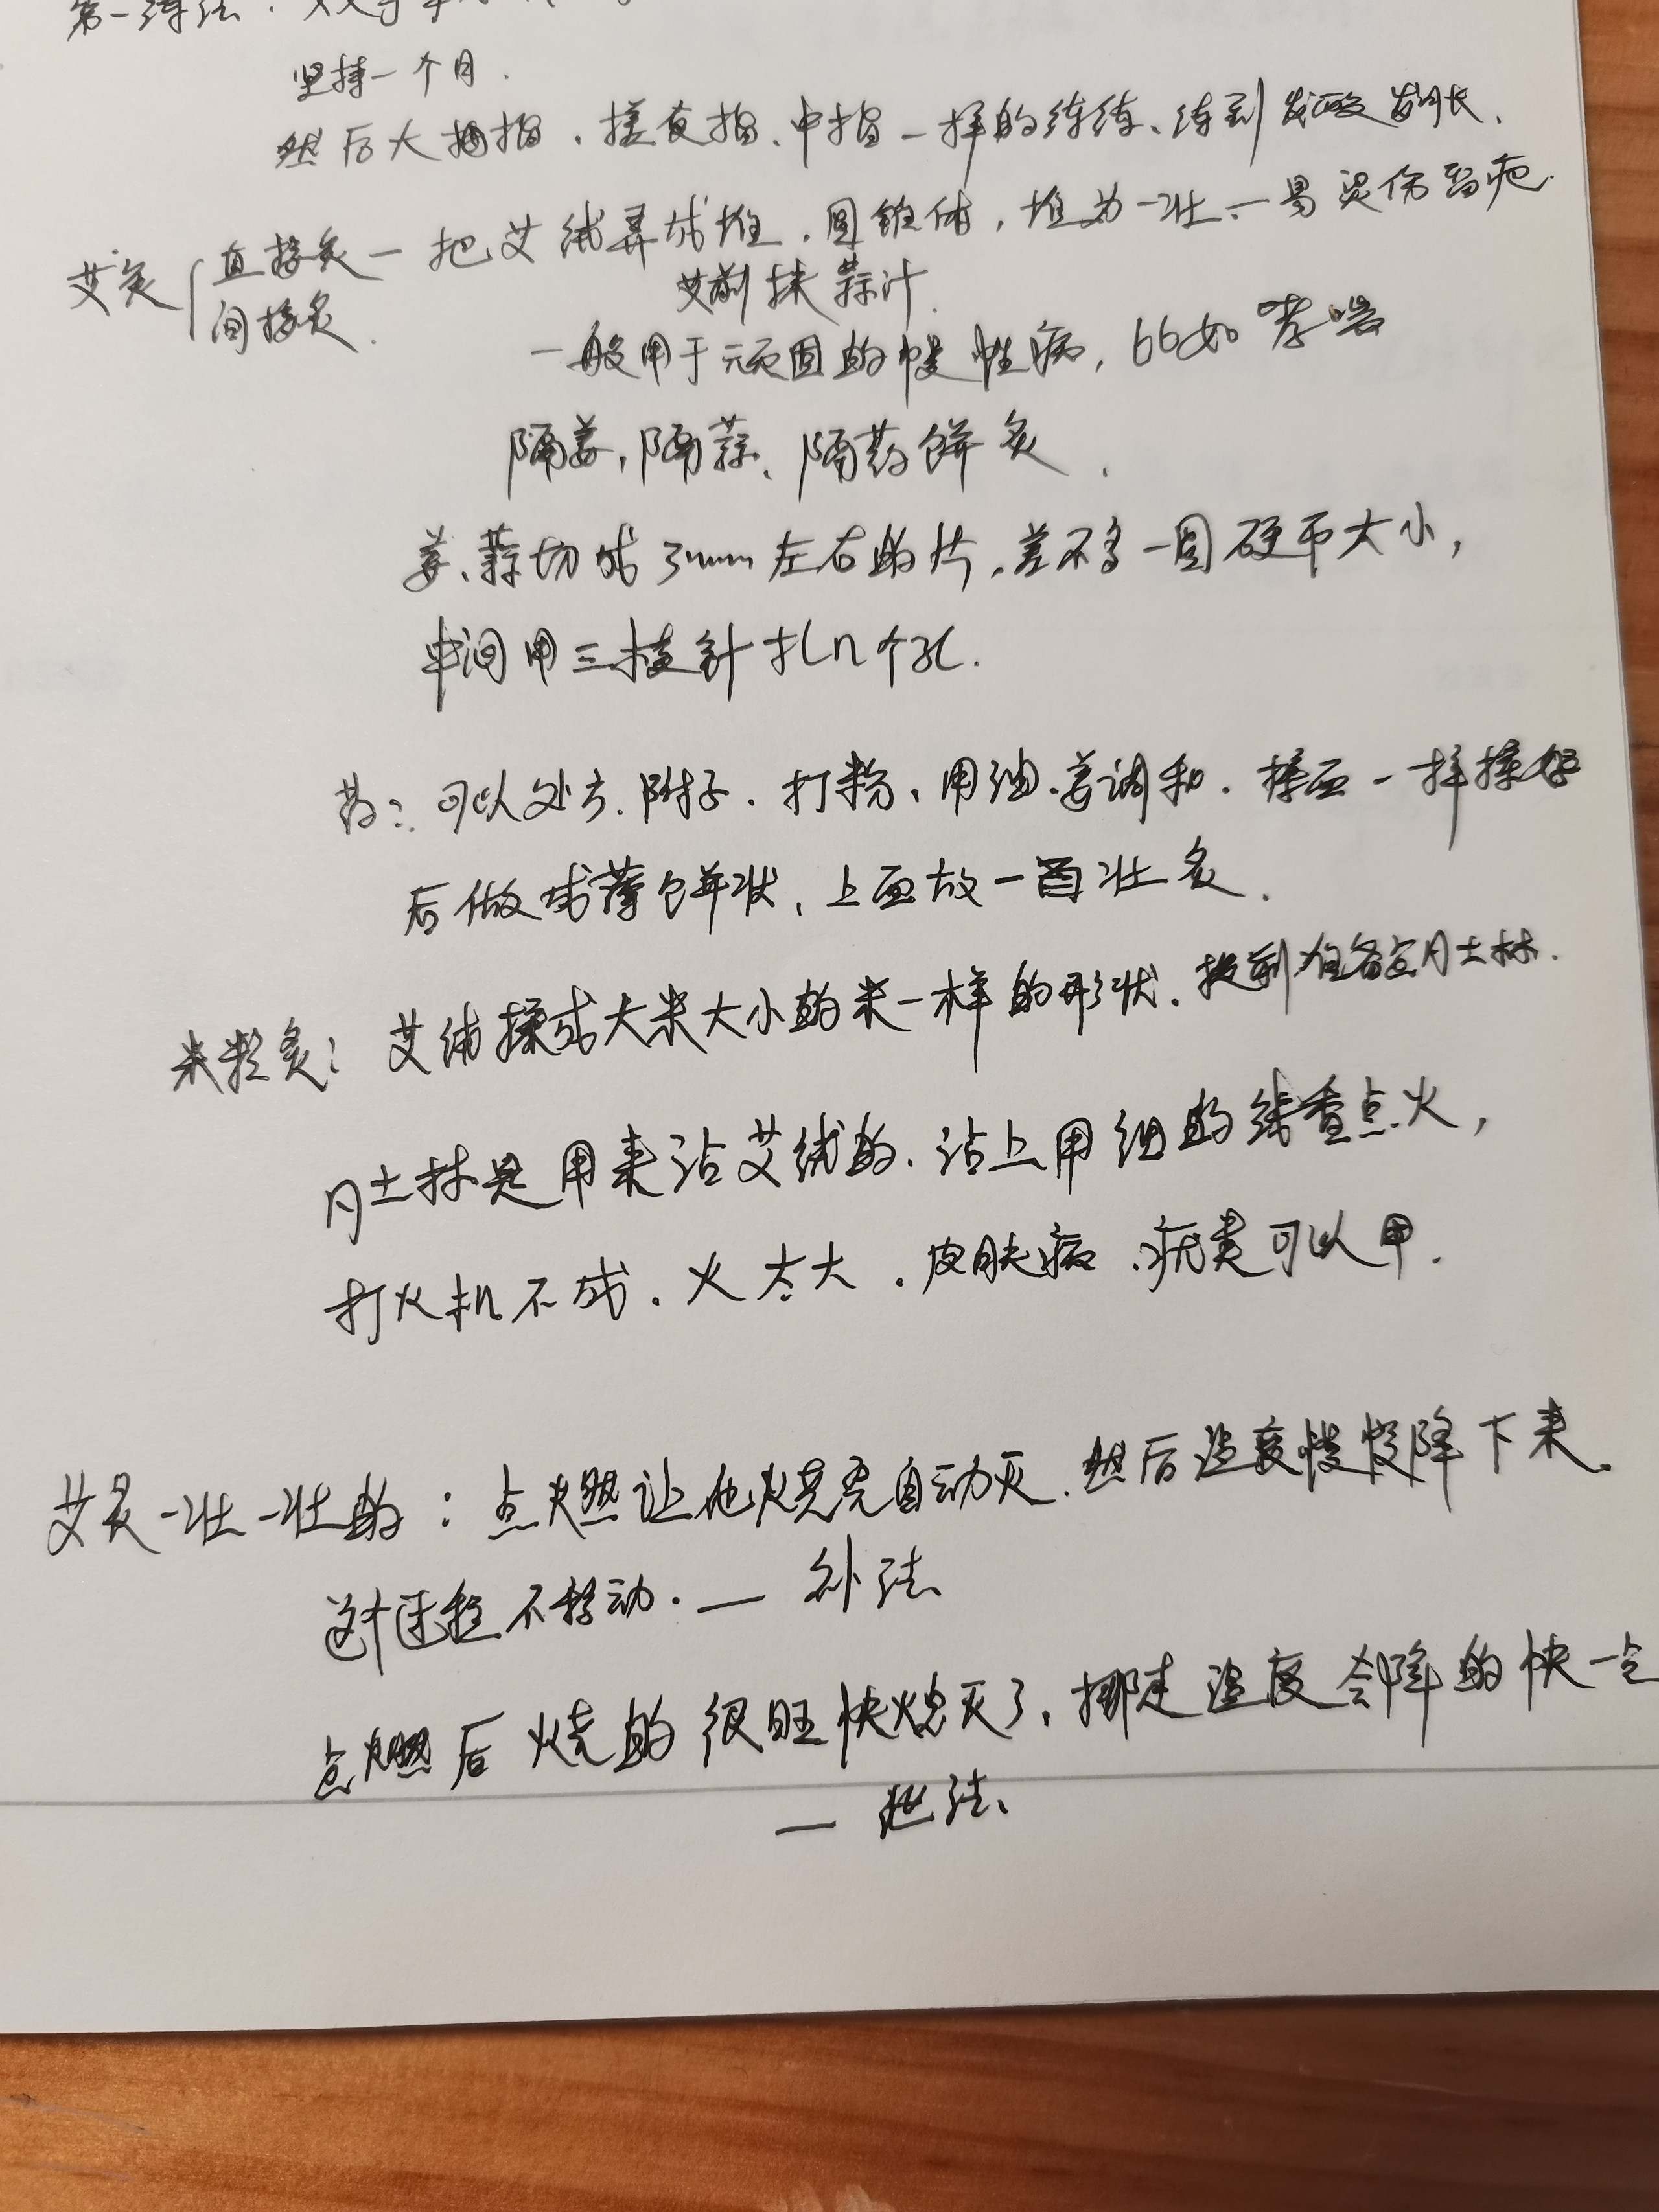 第一练法:
坚持一个月.
然后大拇指、搓食指、中指一样的练练、练到发酸发胀、
艾灸 直接灸—把艾绒弄成堆、圆锥体,堆为一壮—易烫伤留疤.
间接灸. 艾前抹蒜汁.
一般用于顽固的慢性病,比如哮喘
隔姜,隔蒜、隔药饼灸、
姜、蒜切成3mm左右的片、差不多一圆硬币大小,
中间用三棱针扎n个孔.
药:可以处方.附子.打粉、用油.姜调和.揉面一样揉好
后做成薄饼状,上面放一壮灸.
米粒灸:艾绒揉成大米大小的米一样的形状、提前准备点凡士林.
凡士林是用来沾艾绒的.沾上用细的线香点火,
打火机不成.火太大.皮肤病、疣类可以用.
艾灸一壮一壮的:点燃让他烧完自动灭.然后温度慢慢降下来.
这个过程不移动.— 补法
点燃后烧的很旺快熄灭了,挪走温度会降的快一点
— 泄法、